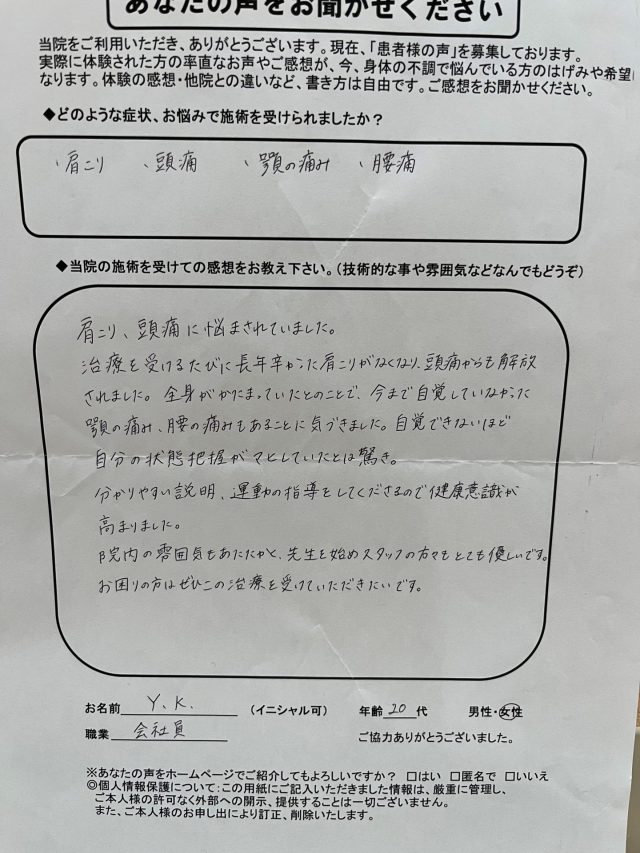 あなたの声をお聞かせください
当院をご利用いただき、ありがとうございます。現在、「患者様の声」を募集しております。
実際に体験された方の率直なお声やご感想が、今、身体の不調で悩んでいる方のはげみや希望に
なります。体験の感想・他院との違いなど、書き方は自由です。ご感想をお聞かせください。
◆どのような症状、お悩みで施術を受けられましたか？
、肩こり 、頭痛 、顎の痛み 、腰痛
◆当院の施術を受けての感想をお教え下さい。（技術的な事や雰囲気などなんでもどうぞ）
肩こり、頭痛に悩まされていました。
治療を受けるたびに長年辛かった肩こりがなくなり、頭痛からも解放
されました。全身がかたまっていたとのことで、今まで自覚していなかった
顎の痛み、腰の痛みもあることに気づきました。自覚できないほど
自分の状態把握がマヒしていたとは驚き。
分かりやすい説明、運動の指導をしてくださるので健康意識が
高まりました。
院内の雰囲気もあたたかく、先生を始めスタッフの方々もとても優しいです。
お困りの方はぜひこの治療を受けていただきたいです。
お名前 Y.K. （イニシャル可） 年齢 20 代 男性・女性
職業 会社員 ご協力ありがとうございました。
※あなたの声をホームページでご紹介してもよろしいですか？ □はい □匿名で □いいえ
◎個人情報保護について：この用紙にご記入いただきました情報は、厳重に管理し、
ご本人様の許可なく外部への開示、提供することは一切ございません。
また、ご本人様のお申し出により訂正、削除いたします。